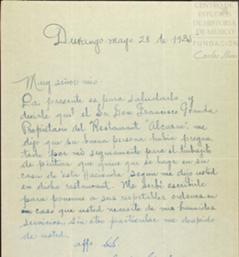 CENTRO DE
ESTUDIOS
DE HISTORIA
DE MEXICO
FUNDACIÓN
Carlos Slim
Durango mayo 28 de 1935
Muy señor mio
La presente es para saludarlo, y
decirle que el Sr Don Francisco
Propietario del Restaurant "Alcazar" me
dijo que su buena persona habia pregun
tado por mi seguramente para el trabajo
de pintura que quiere que se haga en su
casa de esta Hacienda segun me dijo usted
en dicho restaurant. Me escribirle
para ponerme a sus respetables ordenes en
caso que usted necesite de mis humildes
servicios. Sin otro particular me despido
de usted.
affo SS.